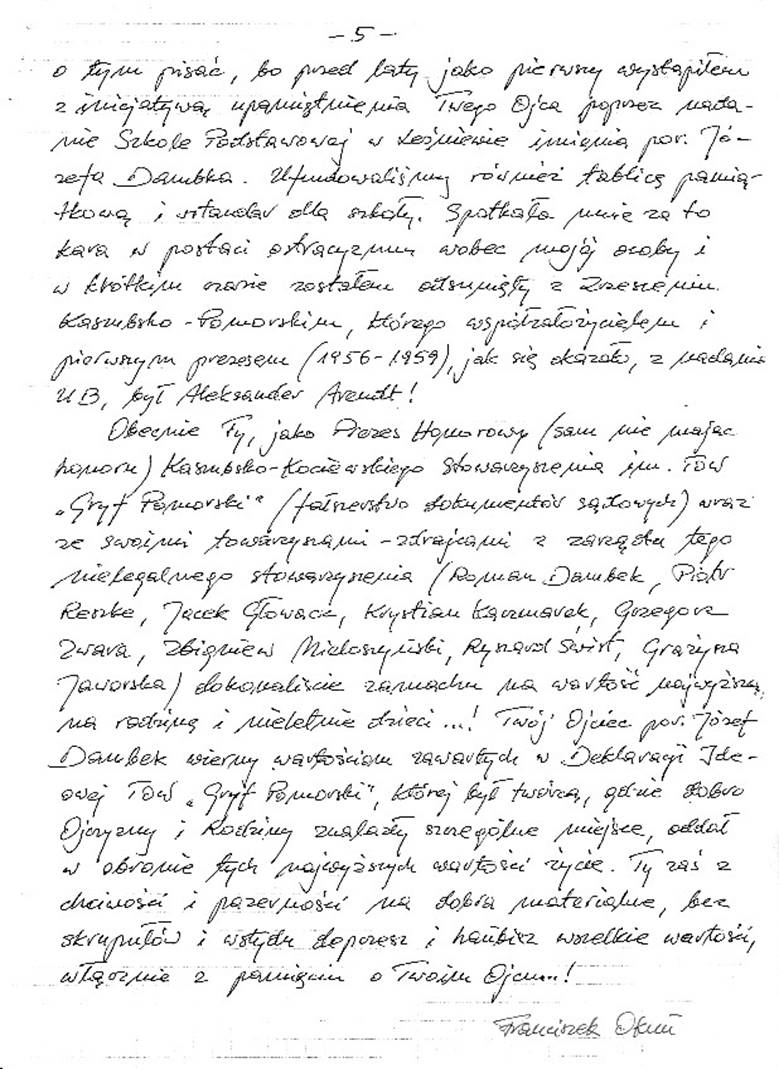 - 5 -
o tym pisać, bo przed laty jako pierwszy wystąpiłem
z inicjatywą upamiętnienia Twego Ojca poprzez nada-
nie Szkole Podstawowej w Leśniewie imienia por. Jó-
zefa Dambka. Ufundowaliśmy również tablicę pamią-
tkową i sztandar dla szkoły. Spotkała mnie za to
kara w postaci ostracyzmu wobec mojej osoby i
w krótkim czasie zostałem odsunięty z Zrzeszenia
Kaszubsko-Pomorskim, którego współzałożycielem i
pierwszym prezesem (1956-1959), jak się okazało, z nadania
UB, był Aleksander Arendt!
Obecnie Ty, jako Prezes Honorowy (sam nie mając
honoru) Kaszubsko-Kociewskiego Stowarzyszenia im. TOW
„Gryf Pomorski" (fałszerstwo dokumentów sądowych) wraz
ze swoimi towarzyszami-zdrajcami z zarządu tego
nielegalnego stowarzyszenia (Roman Dambek, Piotr
Reszke, Jacek Głowacz, Krystian Kaczmarek, Grzegorz
Zwara, Zbigniew Mieloszyński, Ryszard Świrt, Grażyna
Jaworska) dokonaliście zamachu na wartość najwyższą,
na rodzinę i nieletnie dzieci...! Twój Ojciec por. Józef
Dambek wierny wartościom zawartych w Deklaracji Ide-
owej TOW „Gryf Pomorski", której był twórcą, gdzie dobro
Ojczyzny i Rodziny znalazły szczególne miejsce, oddał
w obronie tych najwyższych wartości życie. Ty zaś z
chciwości i pazerności na dobra materialne, bez
skrupułów i wstydu depczesz i hańbisz wszelkie wartości,
włącznie z pamięcią o Twoim Ojcu...!
Franciszek Okuń